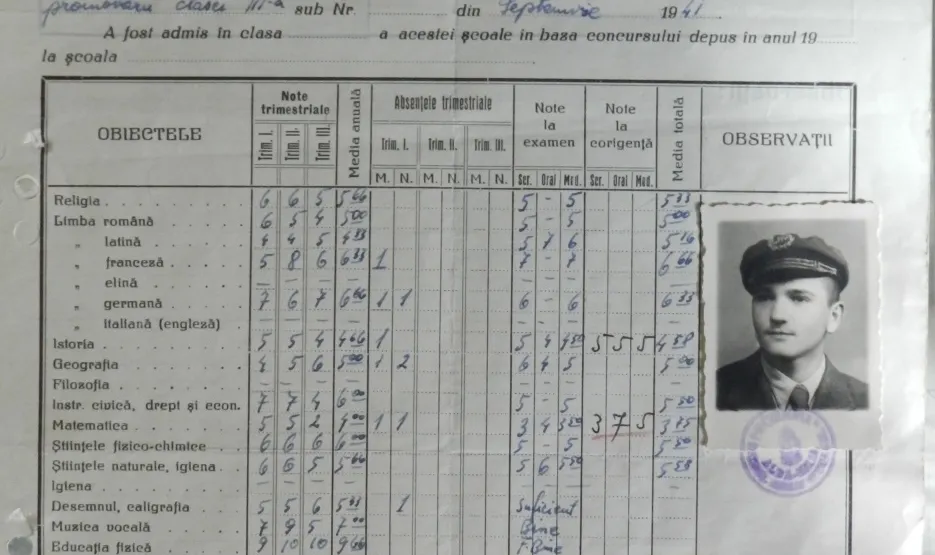 promovării clasei III-a sub Nr. din Septemvrie 1941
A fost admis în clasa a acestei școale în baza concursului depus în anul 19
la școala
OBIECTELE Note trimestriale Media anuală Absențele trimestriale Note la examen Note la corigență Media totală OBSERVAȚII
Trim. I. Trim. II. Trim. III. Trim. I. Trim. II. Trim. III.
M. N. M. N. M. N. Scr. Oral Med. Scr. Oral Med.
Religia 6 6 5 5 66 5 - 5 5 33
Limba română 6 5 4 5 00 5 - 5 5 00
„ latină 4 4 5 4 33 5 7 6 5 16
„ franceză 5 8 6 6 33 1 7 - 7 6 66
„ elină - - - - - - - -
„ germană 7 6 7 6 66 1 1 6 - 6 6 33
„ italiană (engleză) - - - - - - - -
Istoria 5 5 4 4 66 1 5 4 4 50 5 5 5 4 58
Geografia 4 5 6 5 00 1 2 6 4 5 5 00
Filozofia - - - - - - - -
Instr. civică, drept și econ. 7 7 4 6 00 5 - 5 5 50
Matematica 5 5 2 4 00 1 1 3 4 3 50 3 7 5 3 75
Științele fizico-chimice 6 6 6 6 00 5 - 5 5 50
Științele naturale, igiena 6 6 5 5 66 5 6 5 50 5 58
Igiena - - - - - - - -
Desemnul, caligrafia 5 5 6 5 33 1 Suficient
Muzica vocală 7 9 5 7 00 Bine
Educația fizică 9 10 10 9 66 F. Bine